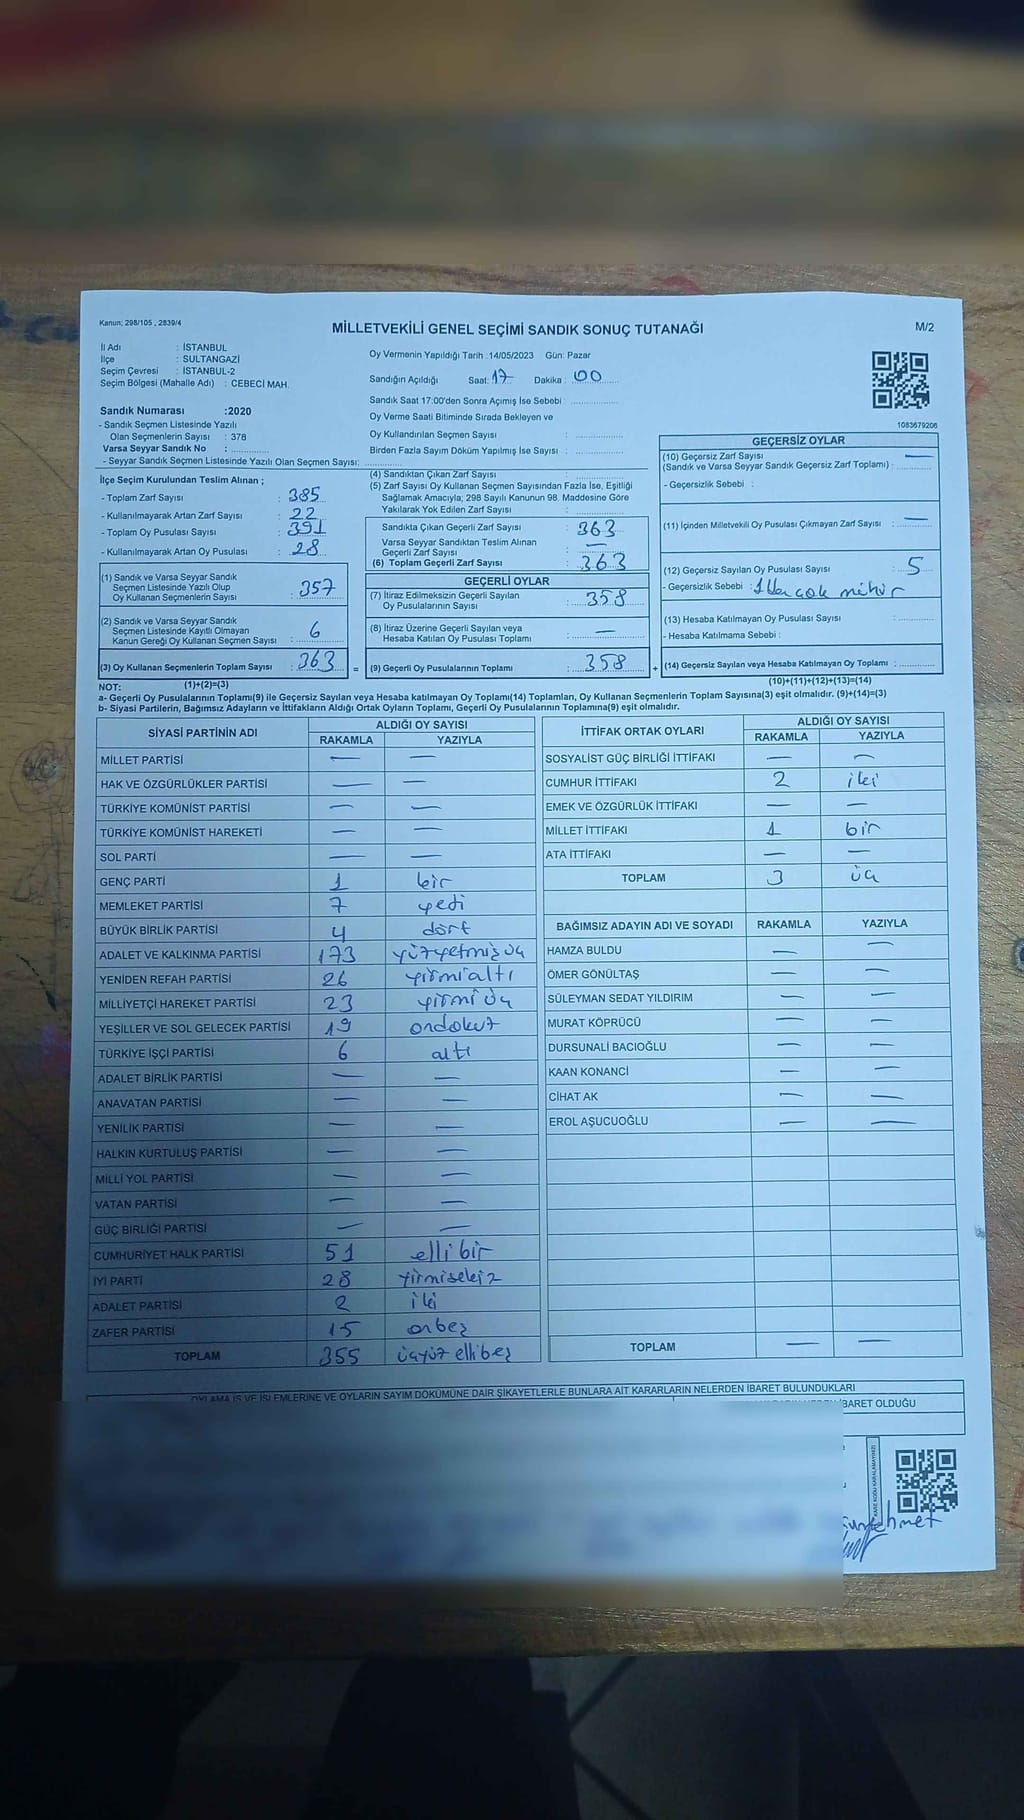 Kanun; 298/105 , 2839/4
MİLLETVEKİLİ GENEL SEÇİMİ SANDIK SONUÇ TUTANAĞI
M/2
İl Adı : İSTANBUL
İlçe : SULTANGAZİ
Seçim Çevresi : İSTANBUL-2
Seçim Bölgesi (Mahalle Adı) : CEBECİ MAH.
Sandık Numarası :2020
- Sandık Seçmen Listesinde Yazılı
Olan Seçmenlerin Sayısı : 378
Varsa Seyyar Sandık No :
- Seyyar Sandık Seçmen Listesinde Yazılı Olan Seçmen Sayısı:
Oy Vermenin Yapıldığı Tarih :14/05/2023 Gün: Pazar
Sandığın Açıldığı Saat: 17 Dakika : 00
Sandık Saat 17:00'den Sonra Açımış İse Sebebi :
Oy Verme Saati Bitiminde Sırada Bekleyen ve
Oy Kullandırılan Seçmen Sayısı :
Birden Fazla Sayım Döküm Yapılmış İse Sayısı :
1083679206
İlçe Seçim Kurulundan Teslim Alınan ;
- Toplam Zarf Sayısı : 385
- Kullanılmayarak Artan Zarf Sayısı : 22
- Toplam Oy Pusulası Sayısı : 391
- Kullanılmayarak Artan Oy Pusulası : 28
(1) Sandık ve Varsa Seyyar Sandık
Seçmen Listesinde Yazılı Olup
Oy Kullanan Seçmenlerin Sayısı : 357
(2) Sandık ve Varsa Seyyar Sandık
Seçmen Listesinde Kayıtlı Olmayan
Kanun Gereği Oy Kullanan Seçmen Sayısı : 6
(3) Oy Kullanan Seçmenlerin Toplam Sayısı : 363 =
(1)+(2)=(3)
(4) Sandıktan Çıkan Zarf Sayısı :
(5) Zarf Sayısı Oy Kullanan Seçmen Sayısından Fazla İse, Eşitliği
Sağlamak Amacıyla; 298 Sayılı Kanunun 98. Maddesine Göre
Yakılarak Yok Edilen Zarf Sayısı :
Sandıkta Çıkan Geçerli Zarf Sayısı : 363
Varsa Seyyar Sandıktan Teslim Alınan
Geçerli Zarf Sayısı : —
(6) Toplam Geçerli Zarf Sayısı : 363
GEÇERLİ OYLAR
(7) İtiraz Edilmeksizin Geçerli Sayılan
Oy Pusulalarının Sayısı : 358
(8) İtiraz Üzerine Geçerli Sayılan veya
Hesaba Katılan Oy Pusulası Toplamı : —
(9) Geçerli Oy Pusulalarının Toplamı : 358 +
GEÇERSİZ OYLAR
(10) Geçersiz Zarf Sayısı
(Sandık ve Varsa Seyyar Sandık Geçersiz Zarf Toplamı) : —
- Geçersizlik Sebebi :
(11) İçinden Milletvekili Oy Pusulası Çıkmayan Zarf Sayısı : —
(12) Geçersiz Sayılan Oy Pusulası Sayısı : 5
- Geçersizlik Sebebi : 1den çok mühür
(13) Hesaba Katılmayan Oy Pusulası Sayısı :
- Hesaba Katılmama Sebebi :
(14) Geçersiz Sayılan veya Hesaba Katılmayan Oy Toplamı :
(10)+(11)+(12)+(13)=(14)
NOT:
a- Geçerli Oy Pusulalarının Toplamı(9) ile Geçersiz Sayılan veya Hesaba katılmayan Oy Toplamı(14) Toplamları, Oy Kullanan Seçmenlerin Toplam Sayısına(3) eşit olmalıdır. (9)+(14)=(3)
b- Siyasi Partilerin, Bağımsız Adayların ve İttifakların Aldığı Ortak Oyların Toplamı, Geçerli Oy Pusulalarının Toplamına(9) eşit olmalıdır.
SİYASİ PARTİNİN ADI ALDIĞI OY SAYISI
RAKAMLA YAZIYLA
MİLLET PARTİSİ — —
HAK VE ÖZGÜRLÜKLER PARTİSİ — —
TÜRKİYE KOMÜNİST PARTİSİ — —
TÜRKİYE KOMÜNİST HAREKETİ — —
SOL PARTİ — —
GENÇ PARTİ 1 bir
MEMLEKET PARTİSİ 7 yedi
BÜYÜK BİRLİK PARTİSİ 4 dört
ADALET VE KALKINMA PARTİSİ 173 yüzyetmişüç
YENİDEN REFAH PARTİSİ 26 yirmialtı
MİLLİYETÇİ HAREKET PARTİSİ 23 yirmiüç
YEŞİLLER VE SOL GELECEK PARTİSİ 19 ondokuz
TÜRKİYE İŞÇİ PARTİSİ 6 altı
ADALET BİRLİK PARTİSİ — —
ANAVATAN PARTİSİ — —
YENİLİK PARTİSİ — —
HALKIN KURTULUŞ PARTİSİ — —
MİLLİ YOL PARTİSİ — —
VATAN PARTİSİ — —
GÜÇ BİRLİĞİ PARTİSİ — —
CUMHURİYET HALK PARTİSİ 51 ellibir
İYİ PARTİ 28 yirmisekiz
ADALET PARTİSİ 2 iki
ZAFER PARTİSİ 15 onbeş
TOPLAM 355 üçyüzellibeş
İTTİFAK ORTAK OYLARI ALDIĞI OY SAYISI
RAKAMLA YAZIYLA
SOSYALİST GÜÇ BİRLİĞİ İTTİFAKI — —
CUMHUR İTTİFAKI 2 iki
EMEK VE ÖZGÜRLÜK İTTİFAKI — —
MİLLET İTTİFAKI 1 bir
ATA İTTİFAKI — —
TOPLAM 3 üç
BAĞIMSIZ ADAYIN ADI VE SOYADI RAKAMLA YAZIYLA
HAMZA BULDU — —
ÖMER GÖNÜLTAŞ — —
SÜLEYMAN SEDAT YILDIRIM — —
MURAT KÖPRÜCÜ — —
DURSUNALİ BACIOĞLU — —
KAAN KONANCİ — —
CİHAT AK — —
EROL AŞUCUOĞLU — —
TOPLAM — —
OYLAMA İŞ VE İŞLEMLERİNE VE OYLARIN SAYIM DÖKÜMÜNE DAİR ŞİKAYETLERLE BUNLARA AİT KARARLARIN NELERDEN İBARET BULUNDUKLARI
İBARET OLDUĞU
KARE KODU KARALAMAYINIZ!